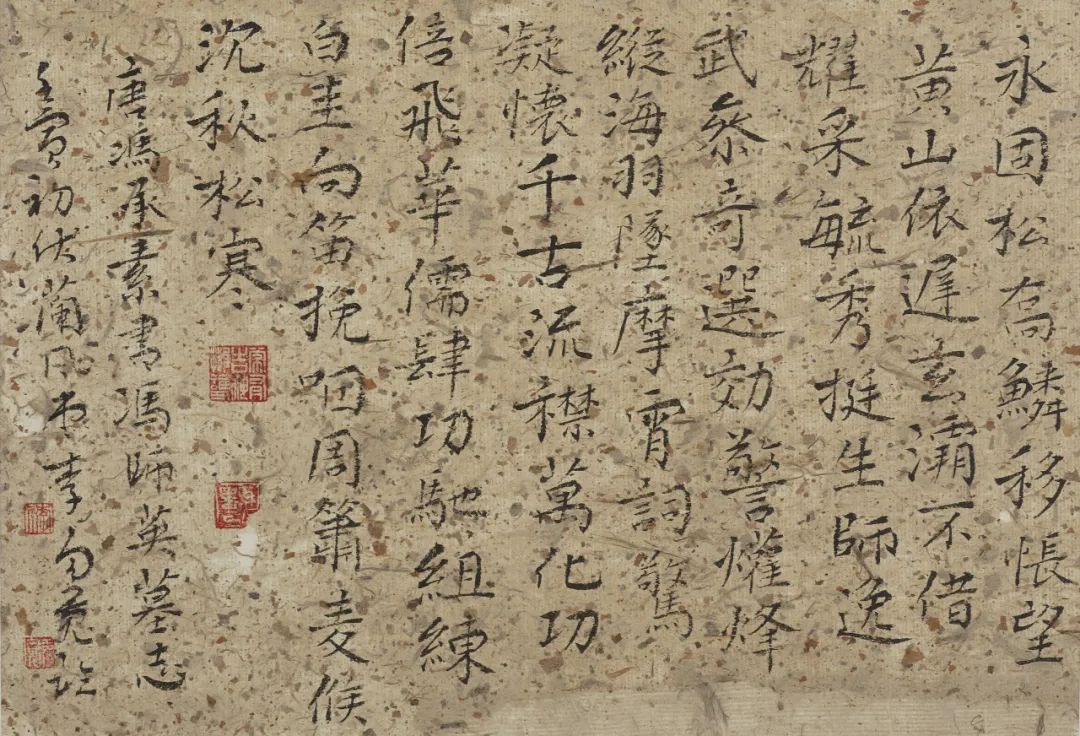 永固松喬鱗移悵望
黃山依遲玄灞不借
耀采毓秀挺生師逸
武叅奇選効警爟烽
縱海羽墜摩霄詞驚
凝懷千古流襟萬化功
倍飛華儒肆功馳組練
白圭向笛挽咽周簫麦候
沈秋松寒
唐馮承素書馮師英墓志
壬寅初伏蘭風李